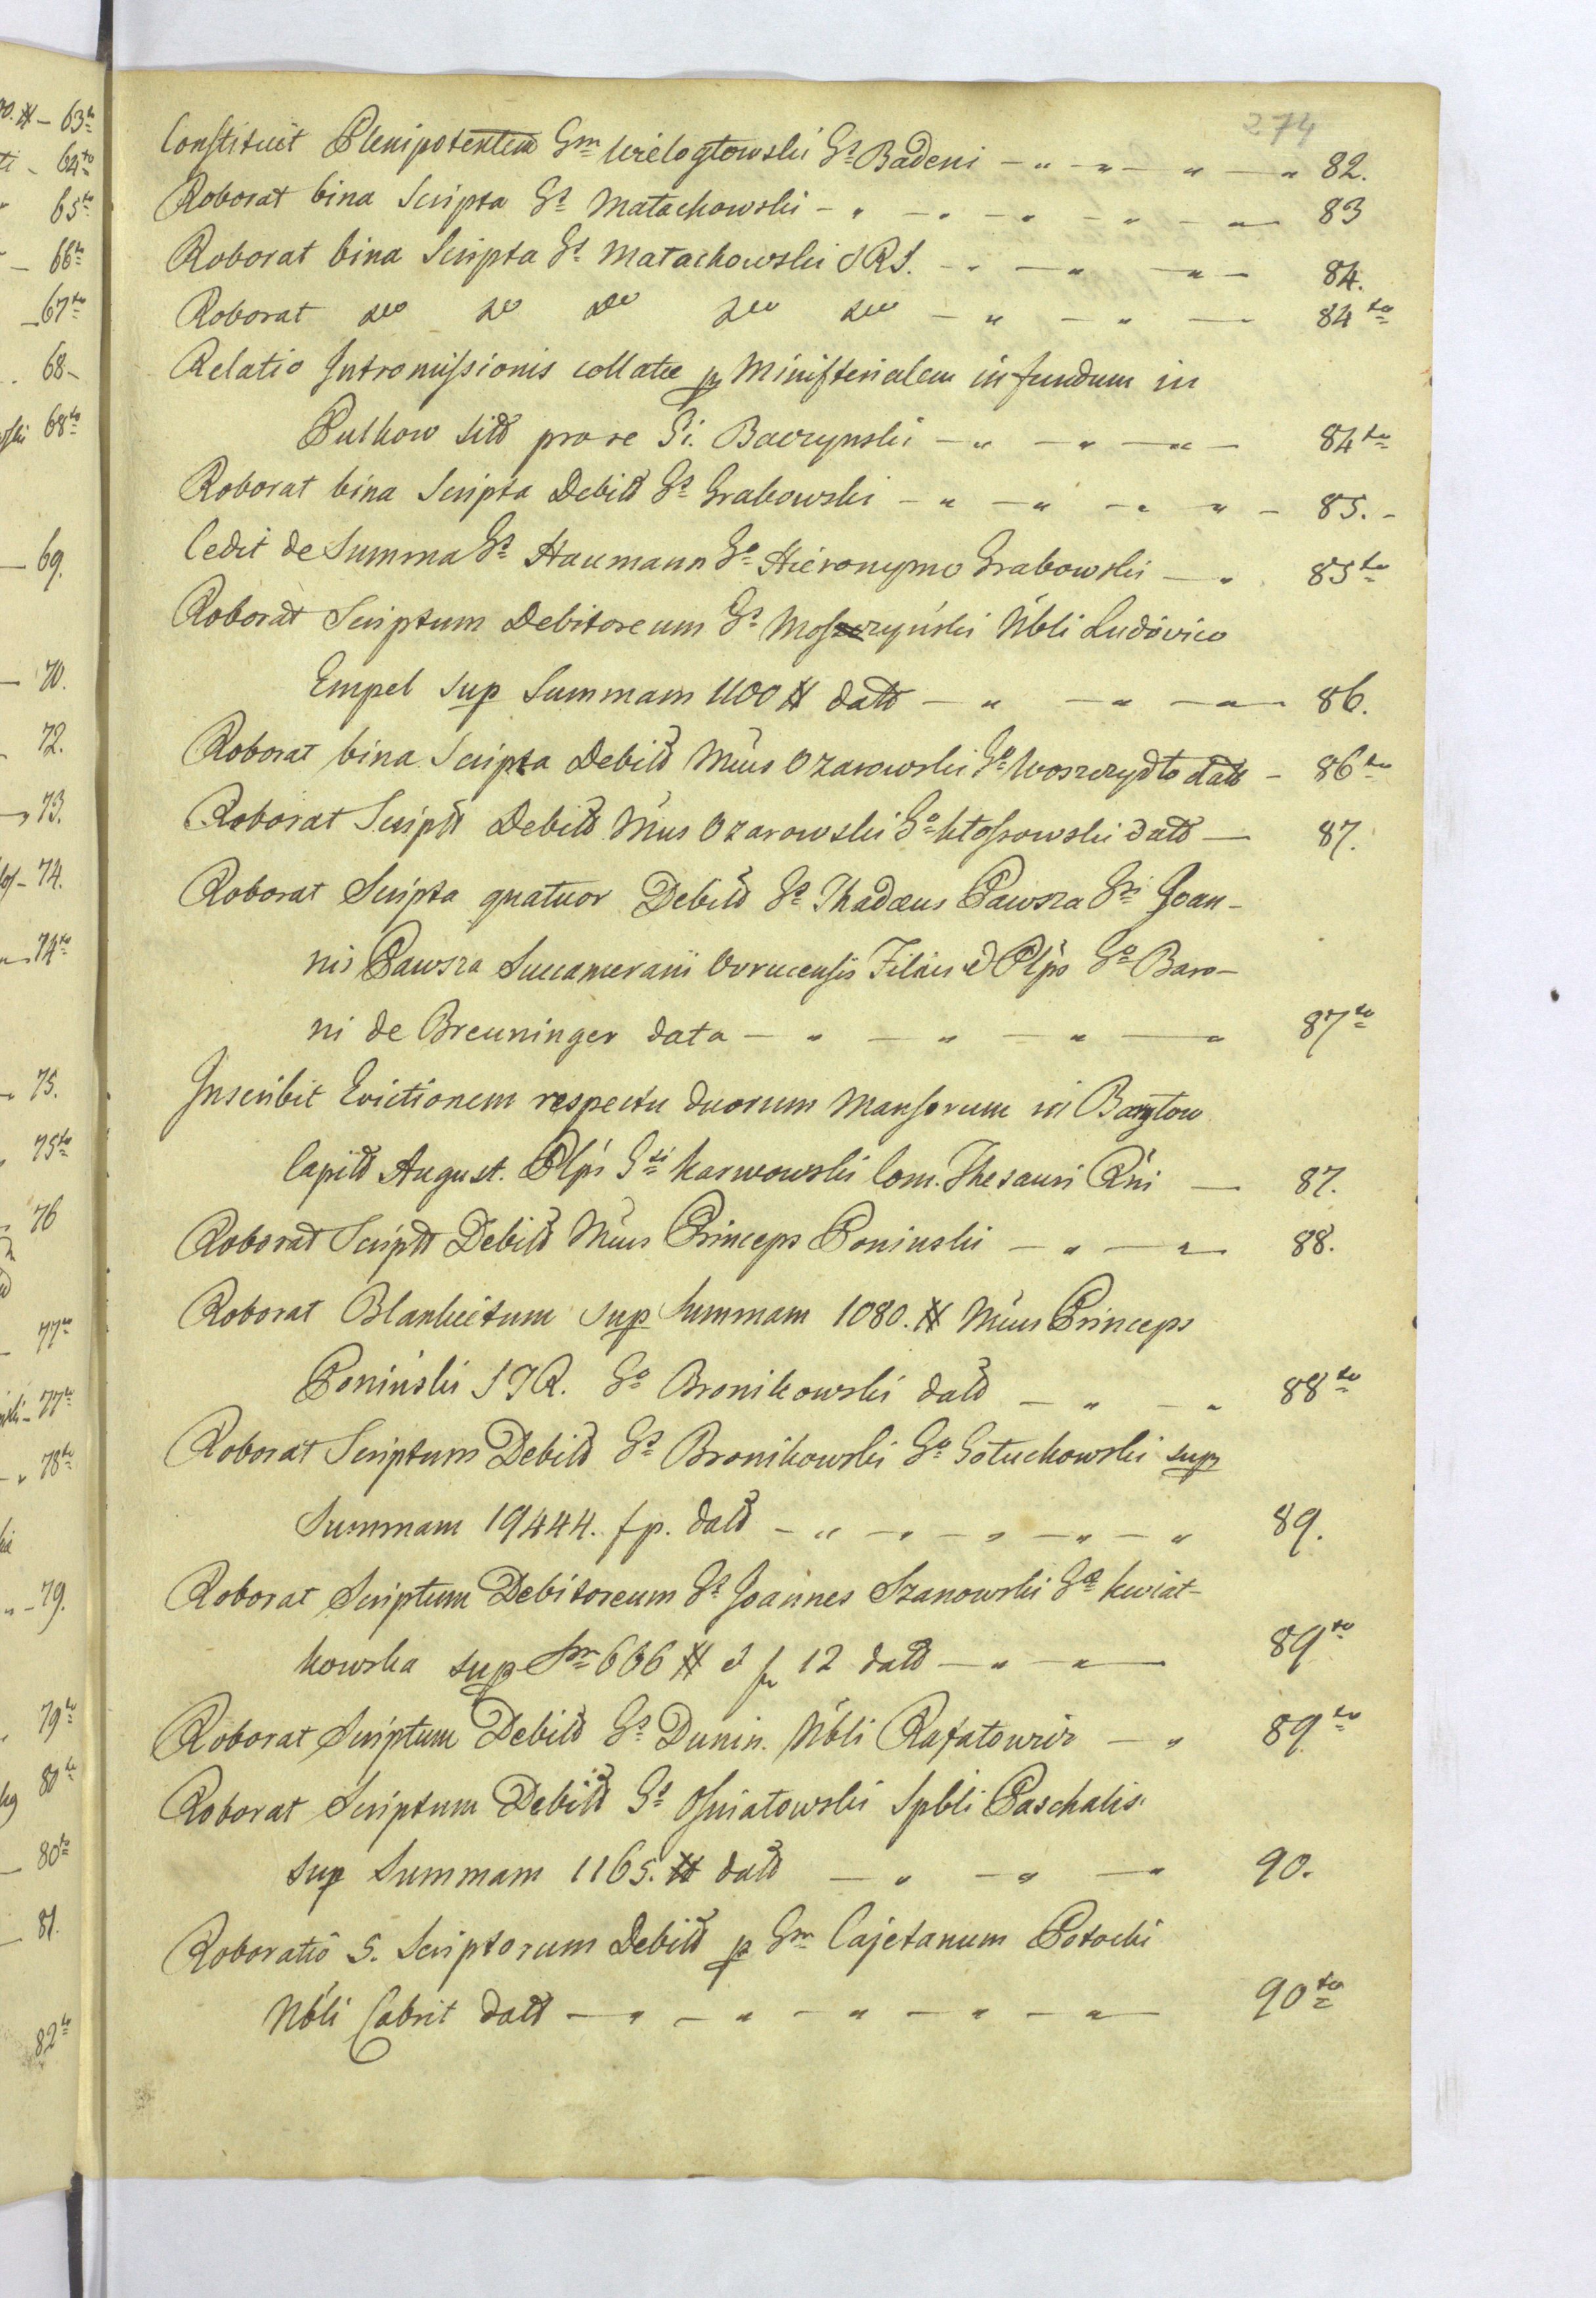 274
Constituit Plenipotentem Gm Wielogłowski Gs Badeni — 82.
Roborat bina Scripta Gs Małachowski — 83
Roborat bina Scripta Gs Małachowski SRJ. — 84.
Roborat dto dto dto dto dto — 84to
Relatio Intromissionis collatæ p Ministerialem in fundum in
Pulkow sitd pro re Gi. Baczynski — 84to
Roborat bina Scripta Debitd Gs Grabowski — 85. -
Cedit de Summa Gs Haumann Go Hieronymo Grabowski — 85to
Roborat Scriptum Debitoreum Gs Moszczyński Nbli Ludovico
Empel sup Summam 1100 # datd — 86.
Roborat bina Scripta Debitd Mus Ozarowski Go Woszczydło datt — 86to
Roborat Scriptt Debitd Mus Ozarowski Go Kłossowski datd — 87.
Roborat Scripta quatuor Debitd Gs Thadæus Pawsza Gsi Joan-
nis Pawsza Succamerarii Ovrucensis Filius d Plps Go Baro-
ni de Breuninger data — 87to
Inscribit Evictionem respectu duorum Mansorum in
Capitd August. Plps Gsi Karwowski Com. Thesauri Rni — 87.
Roborat Scriptt Debitd Mus Princeps Poninski — 88.
Roborat Blankietum sup Summam 1080. # Mus Princeps
Poniński SJR. Go Bronikowski datd — 88to
Roborat Scriptum Debitd Gs Bronikowski Go Gołuchowski sup
Summam 19444. fp. datd — 89.
Roborat Scriptum Debitoreum Gs Joannes Szanowski Gæ Kwiat-
kowska sup Sm 666 # et f 12 datd — 89to
Roborat Scriptum Debitd Gs Dunin. Nbli Rafałowicz — 89to
Roborat Scriptum Debitd Gs Osniatowski Spbli Paschalis
sup Summam 1165. # datd — 90.
Roboratio 5. Scriptorum Debitd p Gm Cajetanum Potocki
Nbli Cabrit datt — 90to